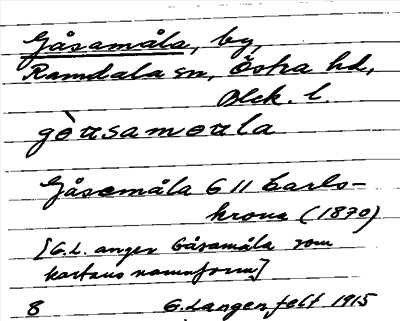 Gåsamåla, by,
Ramdala sn, Östra hd,
Blek. l.
gòasamoala
Gåsemåla G 11 Carls-
krona (1870)
[G.L. anger Gåsamåla som
kartans namnform]
8 G. Langenfelt 1915